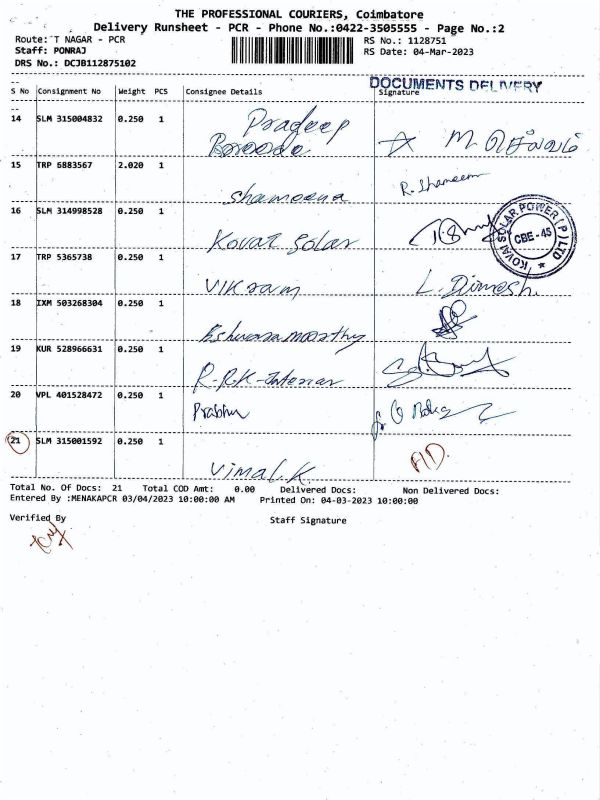 THE PROFESSIONAL COURIERS, Coimbatore
Delivery Runsheet - PCR - Phone No.:0422-3505555 - Page No.:2
Route: T NAGAR - PCR RS No.: 1128751
Staff: PONRAJ RS Date: 04-Mar-2023
DRS No.: DCJB112875102
DOCUMENTS DELIVERY
S No Consignment No Weight PCS Consignee Details Signature
14 SLM 315004832 0.250 1 Pradeep
M. செல்வம்
15 TRP 6883567 2.020 1 Shameena R. Shameem
16 SLM 314998528 0.250 1 Kovai Solar
KOVAI SOLAR POWER (P) LTD CBE - 45
17 TRP 5365738 0.250 1 Vikram L. Dinesh
18 IXM 503268304 0.250 1 Eshwaramoorthy
19 KUR 528966631 0.250 1 R.R.K-Interior
20 VPL 401528472 0.250 1 Prabhu
21 SLM 315001592 0.250 1 Vimal.K
Total No. Of Docs: 21 Total COD Amt: 0.00 Delivered Docs: Non Delivered Docs:
Entered By :MENAKAPCR 03/04/2023 10:00:00 AM Printed On: 04-03-2023 10:00:00
Verified By Staff Signature